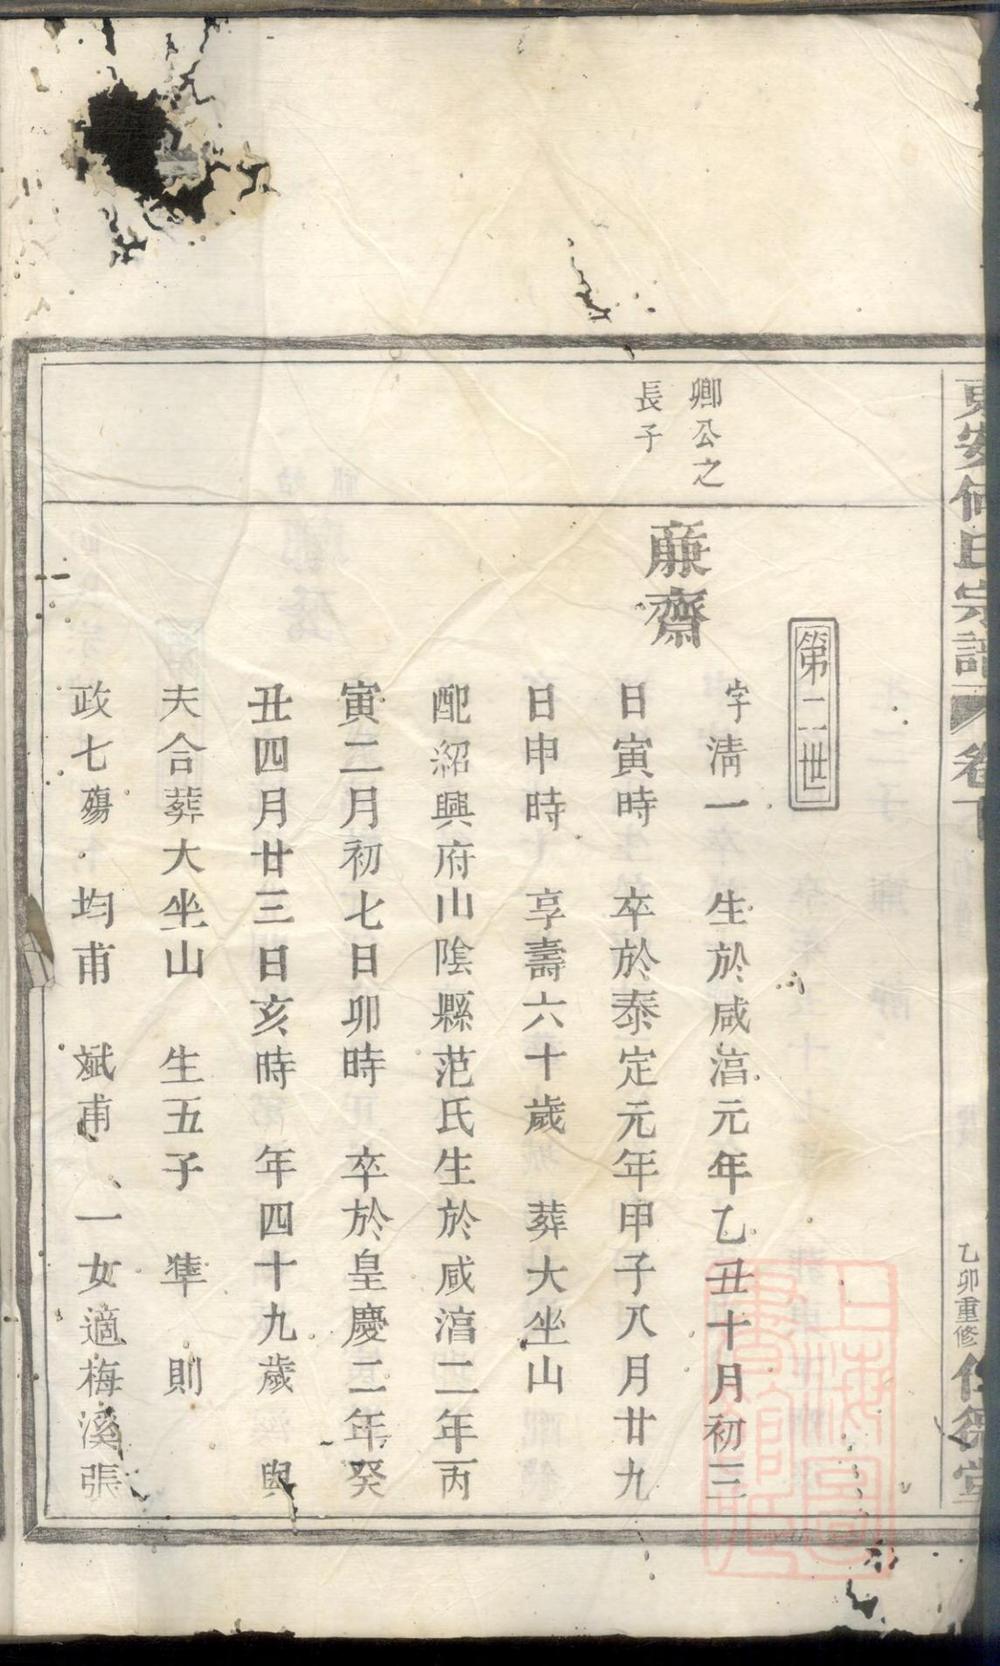 東安何氏宗譜 卷下 乙卯重修
卿公之
長子
第二世
蔴齋
字淸一 生於咸淯元年乙丑十月初三
日寅時 卒於泰定元年甲子八月廿九
日申時 享壽六十歲 葬大坐山
配紹興府山陰縣范氏生於咸淯二年丙
寅二月初七日卯時 卒於皇慶二年癸
丑四月廿三日亥時 年四十九歲 與
夫合葬大坐山 生五子 凖 則
政七殤 均甫 斌甫、一女適梅溪張
上海圖書館藏